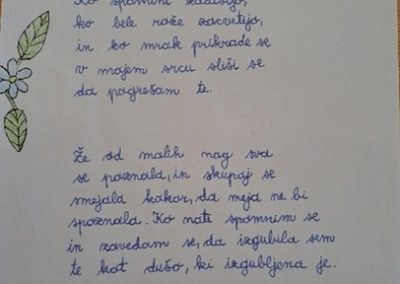 Ko spomini zadišijo,
ko bele rože zacvetijo,
in ko mrak prikrade se
v mojem srcu sliši se
da pogrešam te.
Že od malih nog sva
se poznala, in skupaj se
smejala kakor, da meja ne bi
spoznala. Ko nate spomnim se
in zavedam se, da izgubila sem
te kot dušo, ki izgubljena je.